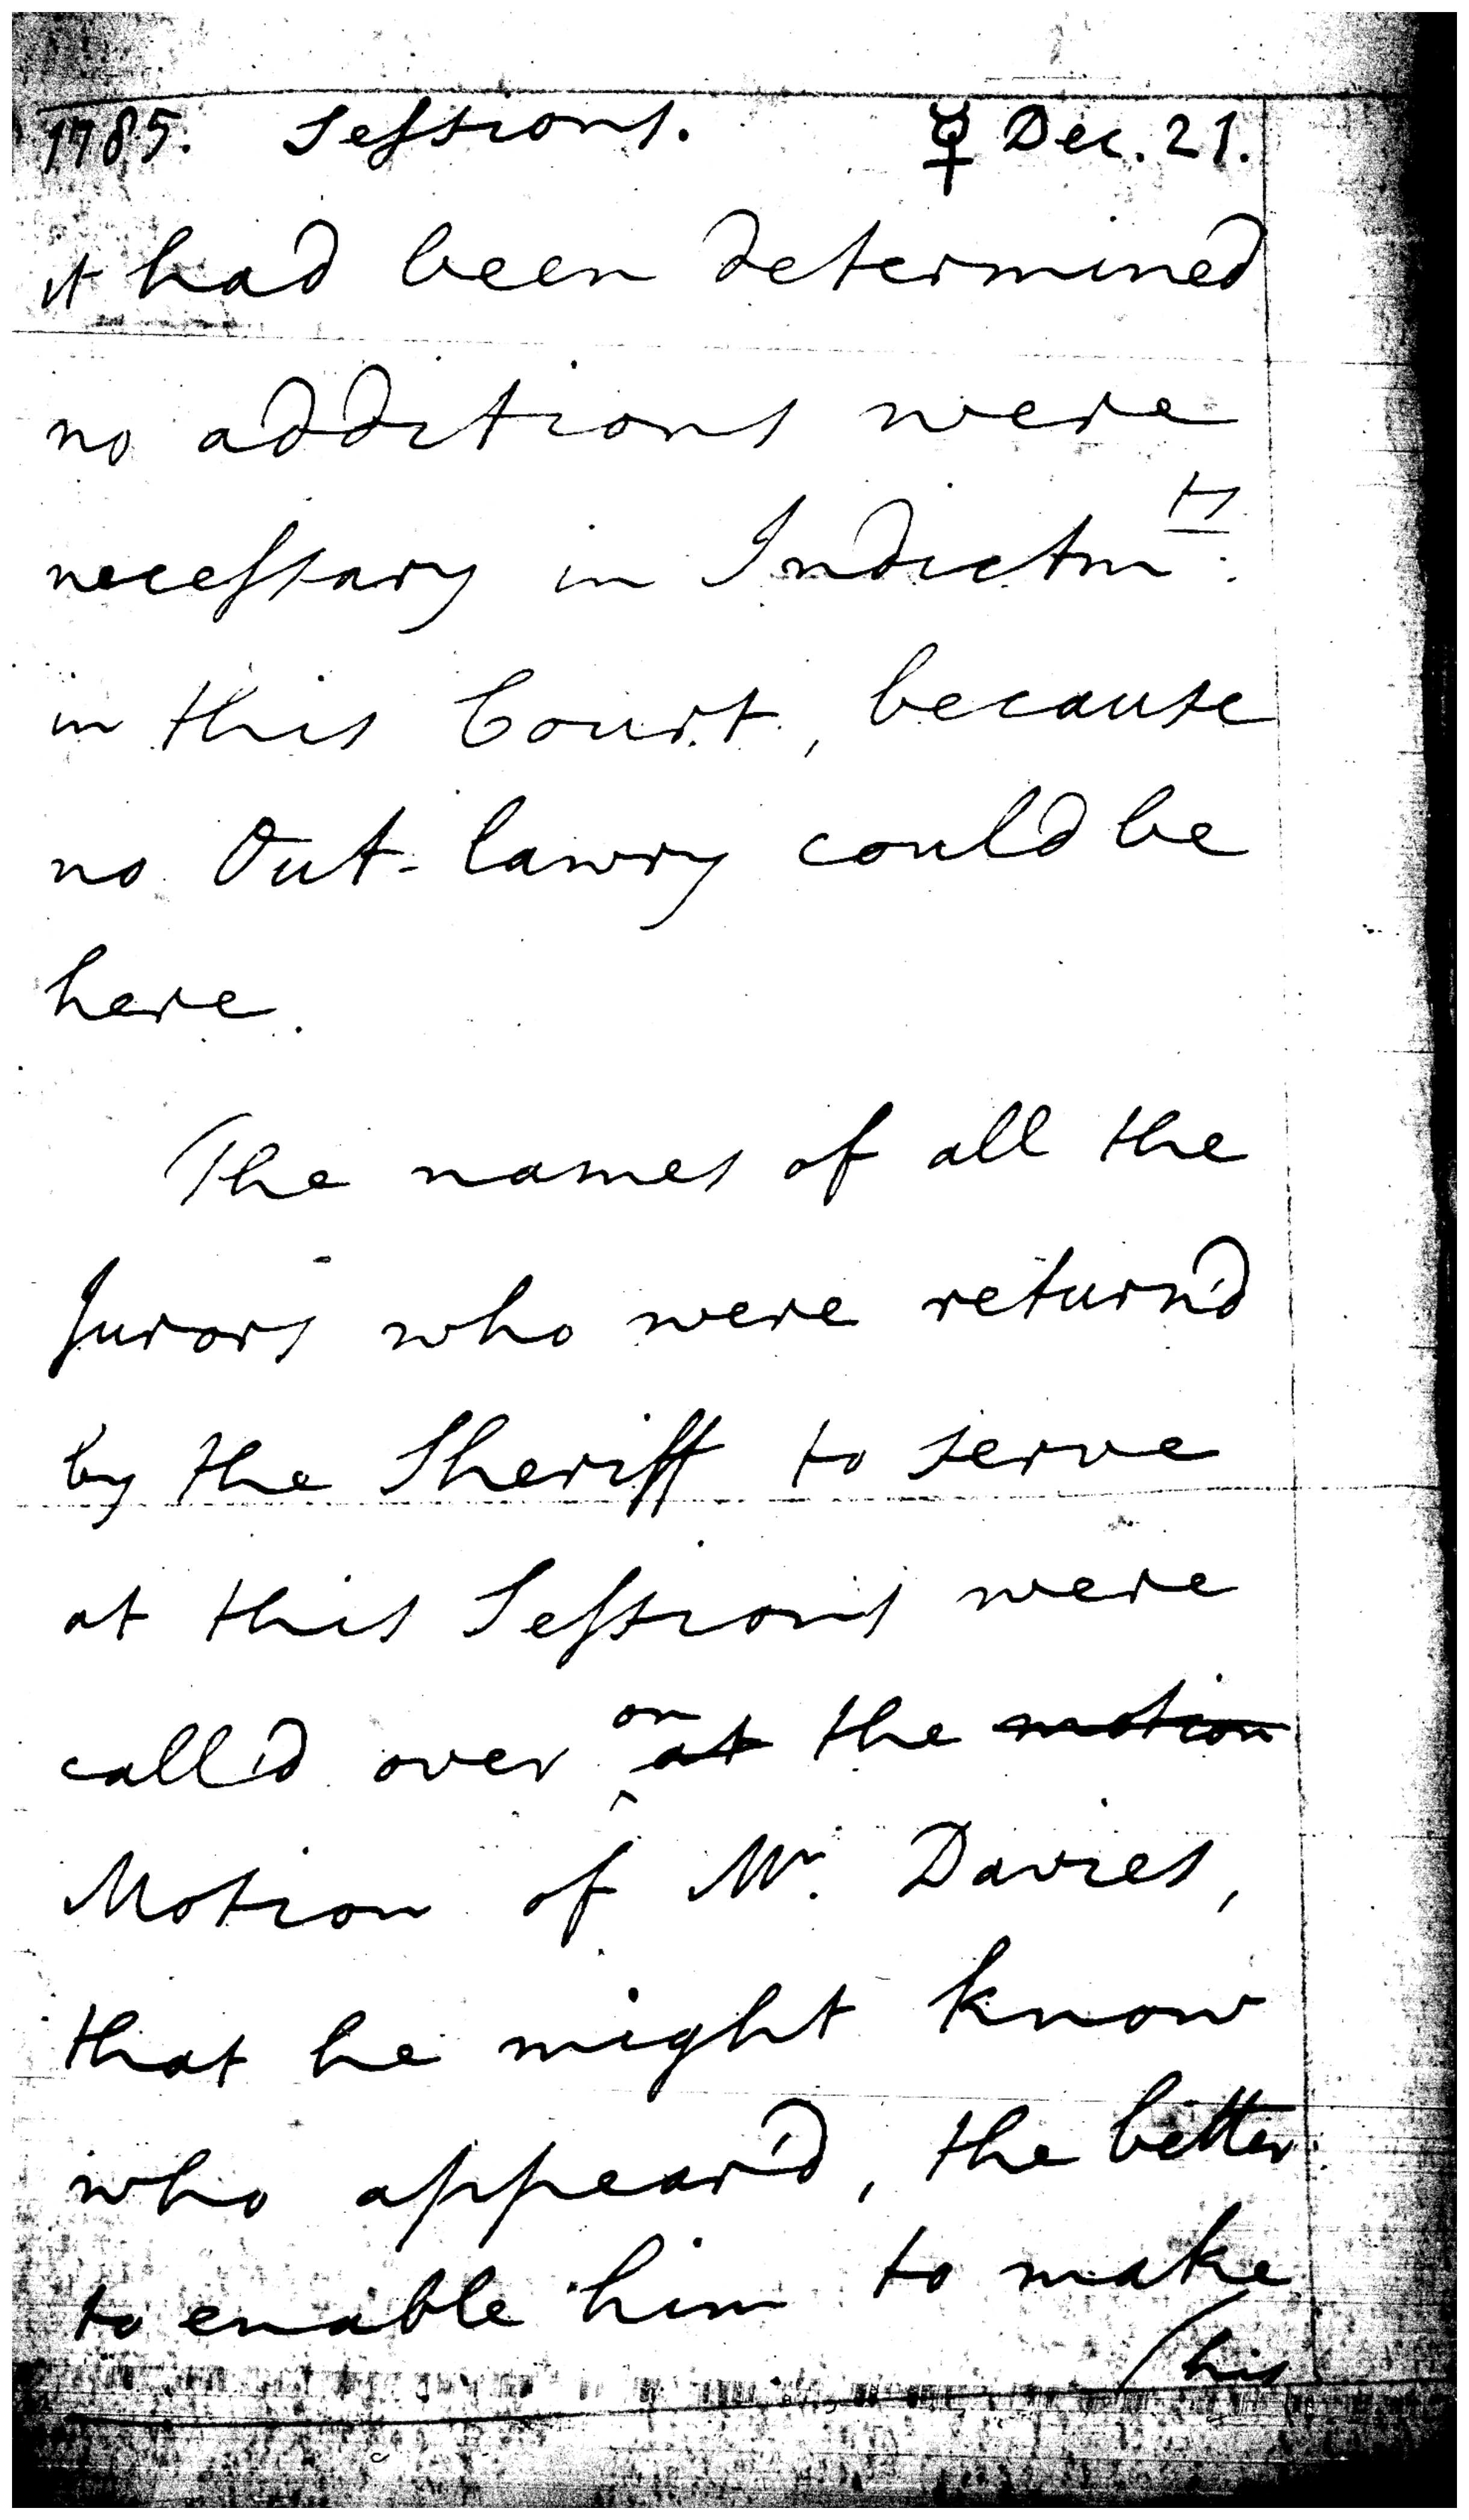 1785. Sessions. ☿ Dec. 21.
it had been determined
no additions were
necessary in Indictm<sup>ts</sup>.
in this Court, because
no Out-lawry could be
here.
The names of all the
Jurors who were return'd
by the Sheriff to serve
at this Sessions were
call'd over ^on <s>at</s> the <s>motion</s>
Motion of Mr. Davies,
that he might know
who appear'd, the better
to enable him to make
(his